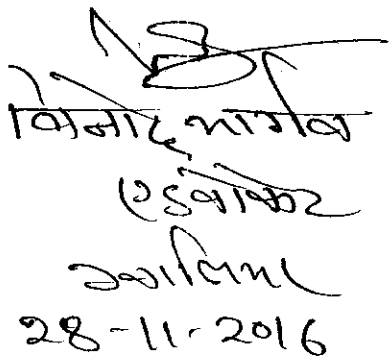 विनोद भार्गव
एडवोकेट
ग्वालियर
28-11-2016